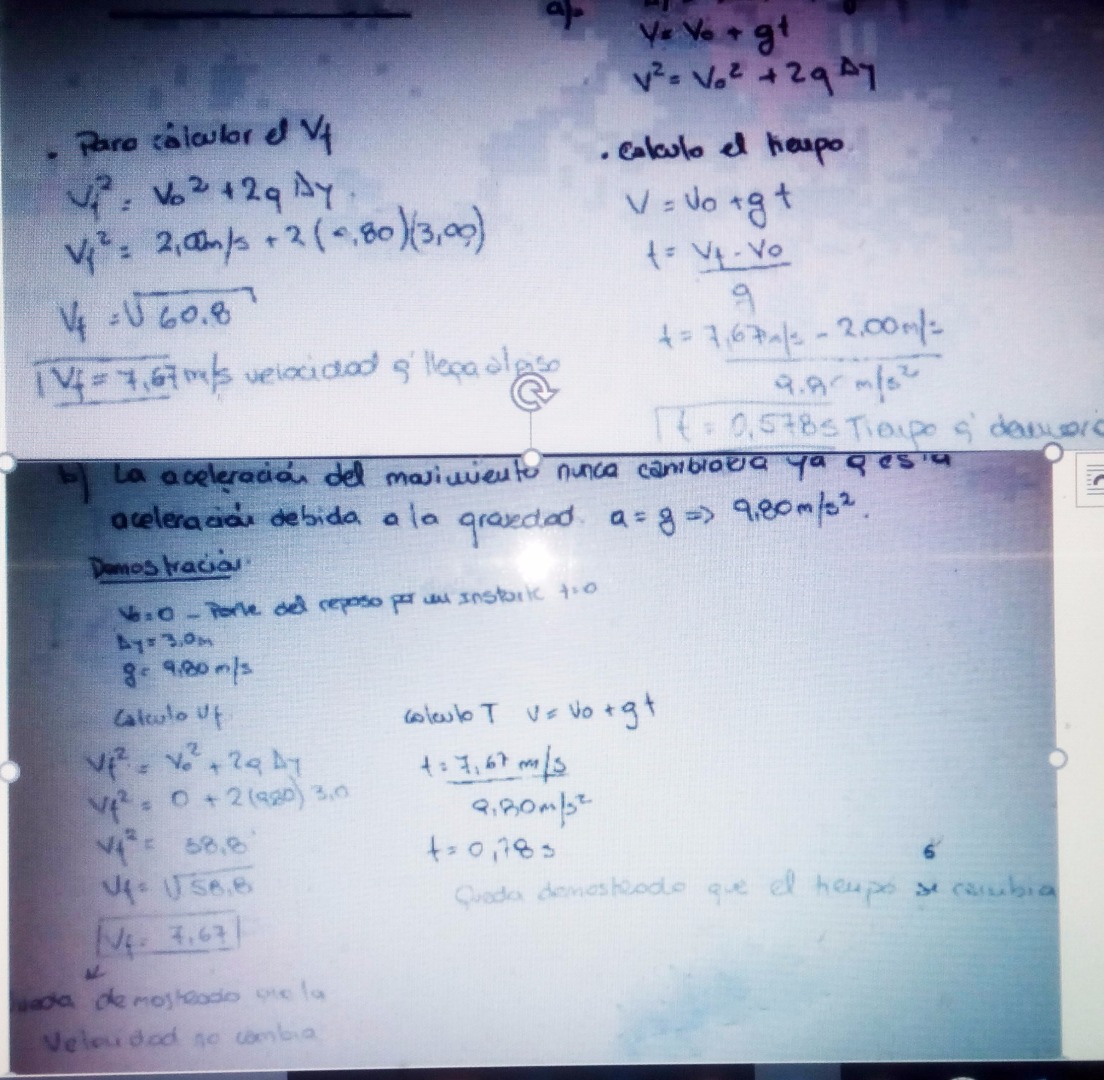 a).
V = Vo + gt
V² = Vo² + 2g Δy
. Para cálcular el Vf
Vf² = Vo² + 2g Δy.
Vf² = 2,00m/s + 2(9,80)(3,00)
Vf = √60.8
Vf = 7,67 m/s velocidad q' llega al piso
. Calculo el tiempo.
V = Vo + g t
t = Vf - Vo
g
t = 7,67m/s - 2.00m/s
9.8 m/s²
t = 0,578s Tiempo q'
b) La aceleración del movimiento nunca cambiaria ya q es la
aceleración debida a la gravedad. a = g => 9,80m/s².
Demostración.
Vo = 0 - Parte del reposo por un instante t=0
Δy = 3,0m
g = 9.80 m/s
Calculo Vf
Vf² = Vo² + 2g Δy
Vf² = 0 + 2(9,80) 3,0
Vf² = 58,8
Vf = √58,8
Vf = 7,67
demostrado que la
Velocidad no cambia
Calculo T V = Vo + g t
t = 7,67 m/s
9,80m/s²
t = 0,78 s
6
Queda demostrado que el tiempo se cambia